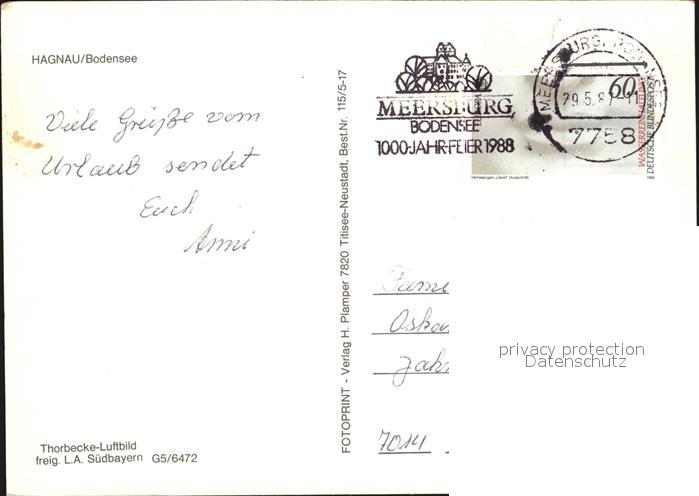 HAGNAU/Bodensee
Viele Grüße vom
Urlaub sendet
Euch
Anni
Thorbecke-Luftbild
freig. L.A. Südbayern G5/6472
FOTOPRINT - Verlag H. Plamper 7820 Titisee-Neustadt, Best.Nr. 115/5-17
MEERSBURG
BODENSEE
1000-JAHR-FEIER 1988
MEERSBURG, BODENSEE
29.5.87
7758
60
DEUTSCHE BUNDESPOST
1986
Fami
Oska
Jahn
7014
privacy protection
Datenschutz